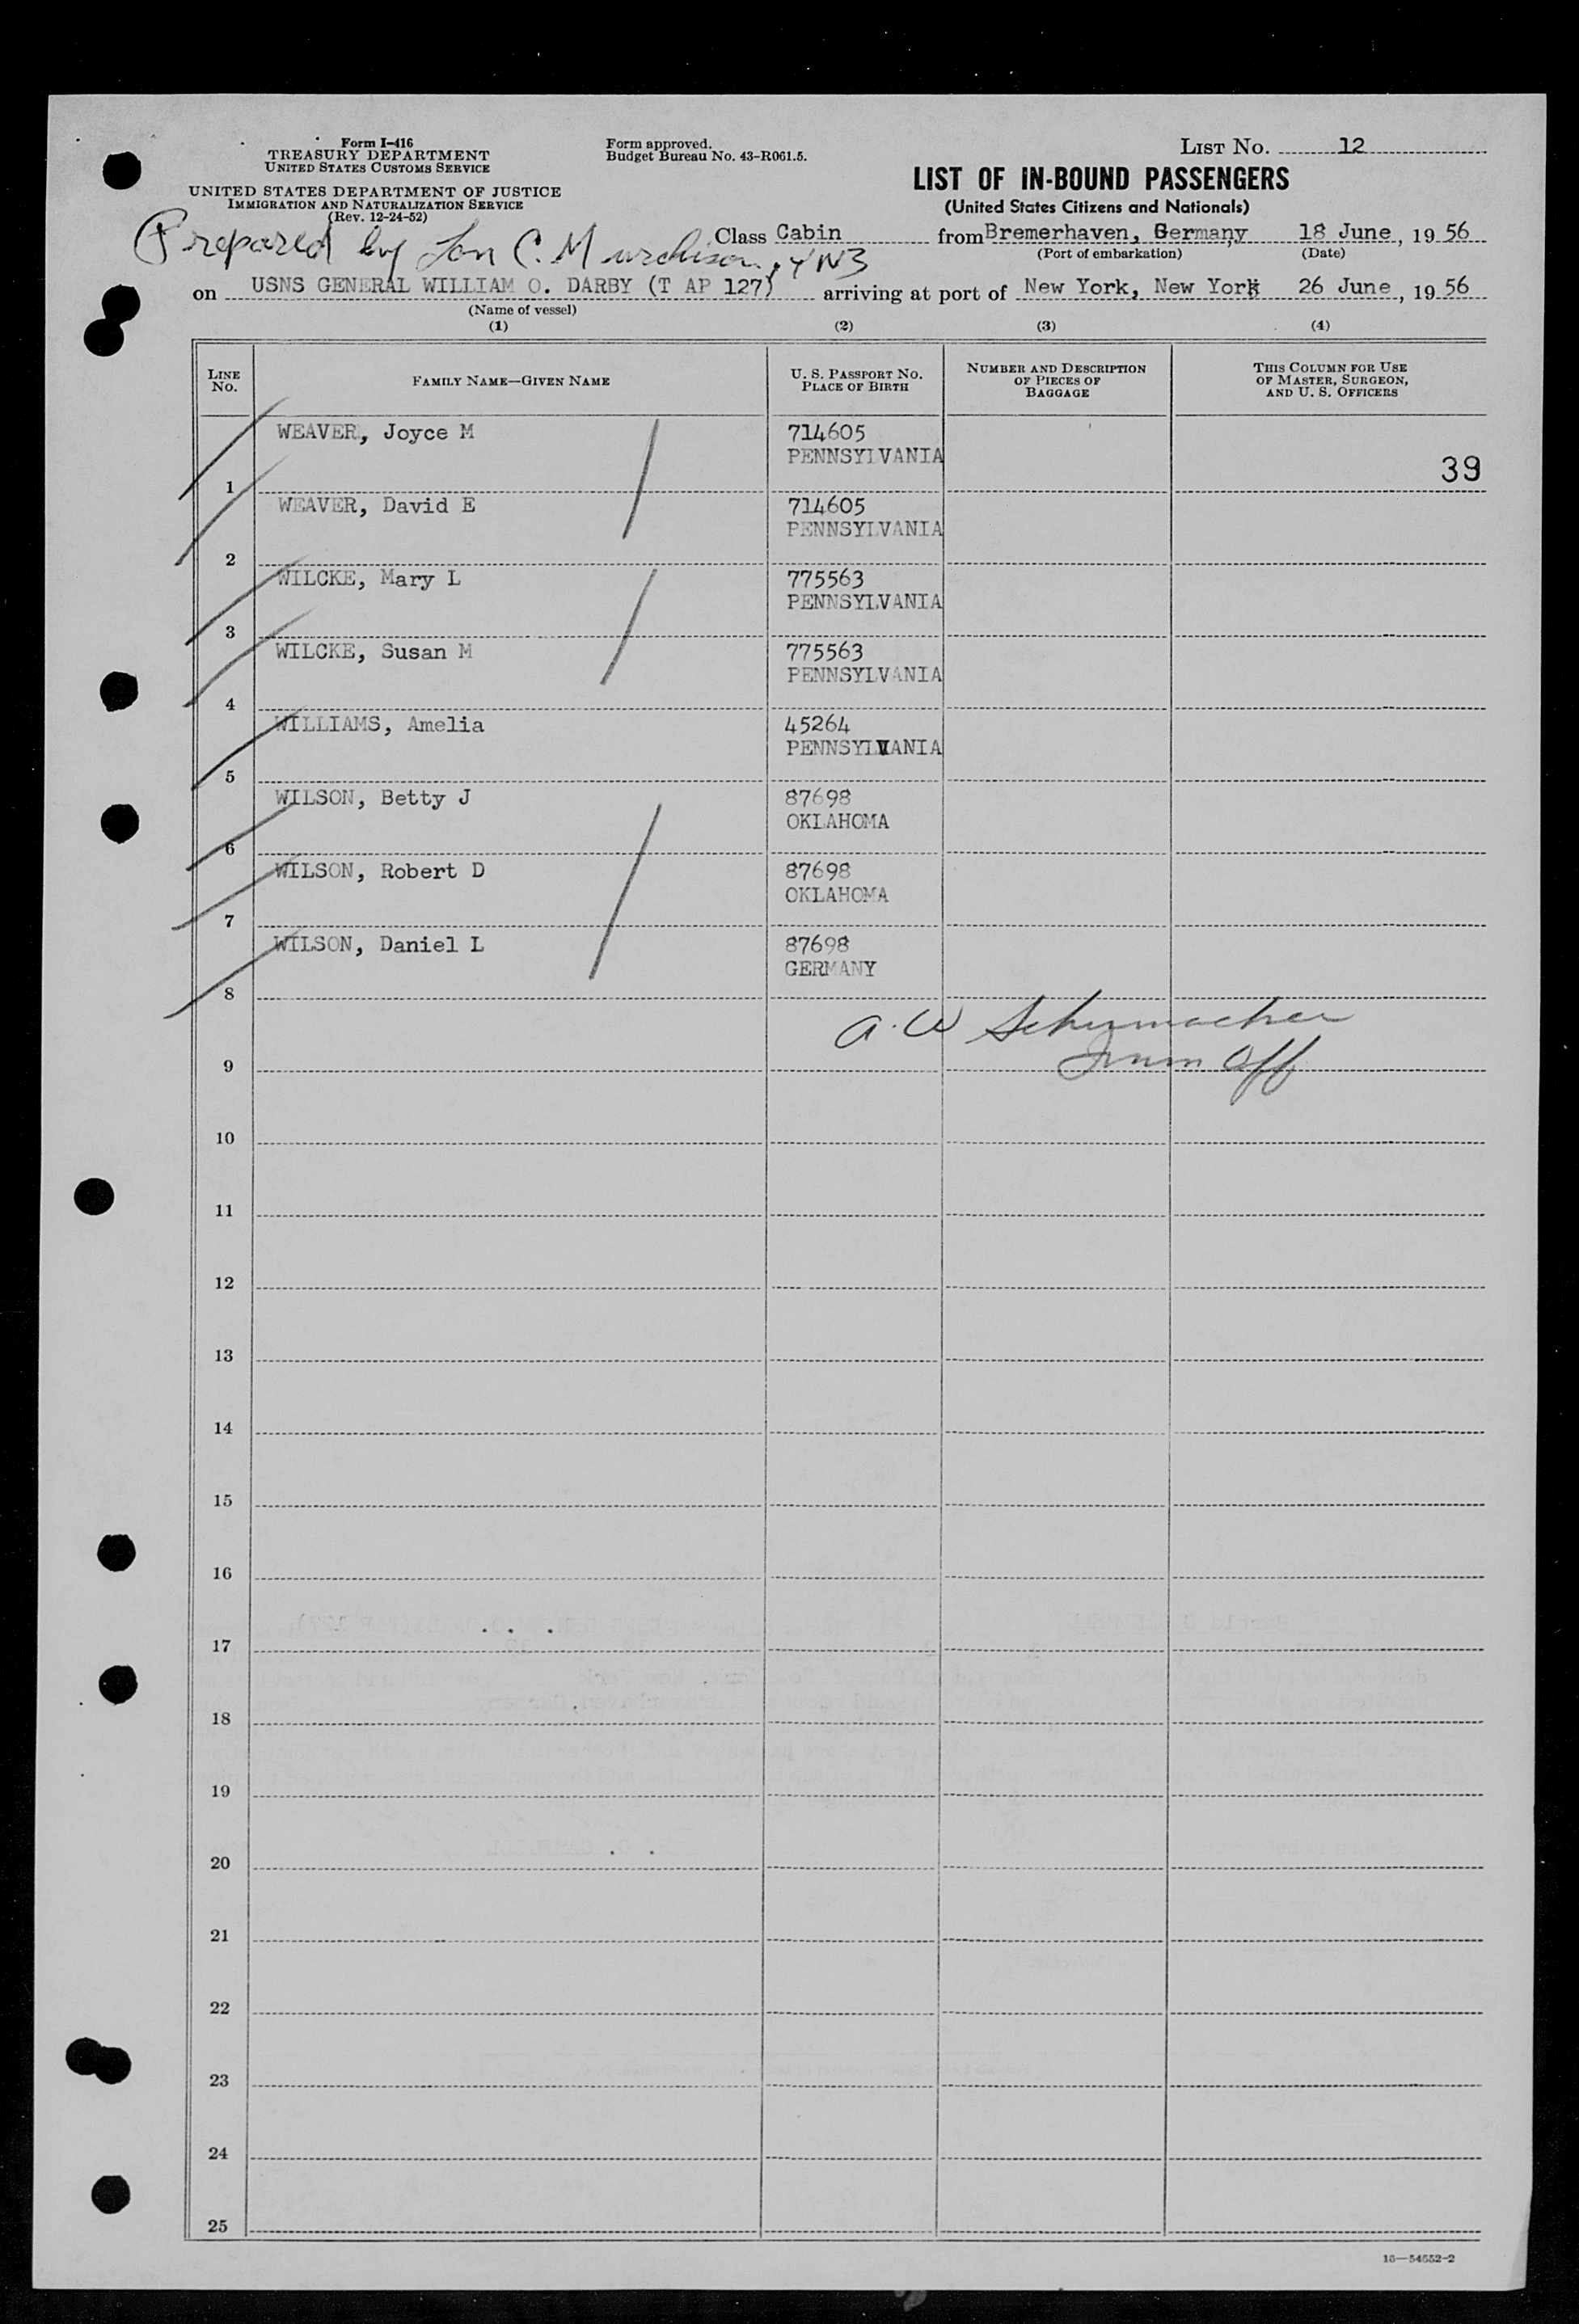 Form I-416
TREASURY DEPARTMENT
UNITED STATES CUSTOMS SERVICE
UNITED STATES DEPARTMENT OF JUSTICE
IMMIGRATION AND NATURALIZATION SERVICE
(Rev. 12-24-52)
Form approved.
Budget Bureau No. 43-R061.5.
LIST NO. 12
LIST OF IN-BOUND PASSENGERS
(United States Citizens and Nationals)
Prepared by Lon C. Murchison, YN3
Class Cabin from Bremerhaven, Germany 18 June, 19 56
(Port of embarkation) (Date)
on USNS GENERAL WILLIAM O. DARBY (T AP 127) arriving at port of New York, New York 26 June, 19 56
(Name of vessel)
(1) (2) (3) (4)
LINE NO. FAMILY NAME—GIVEN NAME U. S. PASSPORT NO. PLACE OF BIRTH NUMBER AND DESCRIPTION OF PIECES OF BAGGAGE THIS COLUMN FOR USE OF MASTER, SURGEON, AND U. S. OFFICERS
WEAVER, Joyce M 714605
PENNSYLVANIA
39
1
WEAVER, David E 714605
PENNSYLVANIA
2
WILCKE, Mary L 775563
PENNSYLVANIA
3
WILCKE, Susan M 775563
PENNSYLVANIA
4
WILLIAMS, Amelia 45264
PENNSYLVANIA
5
WILSON, Betty J 87698
OKLAHOMA
6
WILSON, Robert D 87698
OKLAHOMA
7
WILSON, Daniel L 87698
GERMANY
8
A. W Schumacher
Imm Off
9
10
11
12
13
14
15
16
17
18
19
20
21
22
23
24
25
16—54552-2